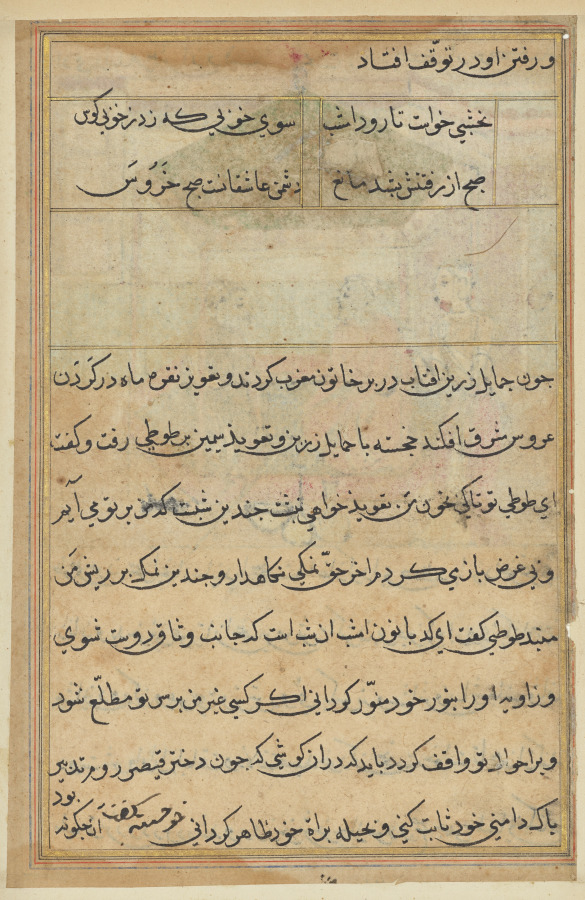 و رفتن او در توقف افتاد
نخشبی خواست تا رود امشب سوی خوبی که زد ز خوبی کوس
صبح از رفتنش بشد مانع دشمن عاشقانست صبح خَرُوسَ
چون حمایل زرین افتاب در بر خاتون مغرب کردند و تعویز نقره ماه در گردن
عروس شرق افکند خجسته با حمایل زرین و تعویذ سیمین بر طوطی رفت و گفت
ای طوطی تو تا کی بخون من تعویذ خواهی نبشت چندین شبست که من بر تو می آیم
و بی غرض باز می کردم اخر حق نمکی نگاهدار و چندین نمک بر ریش من
مبند طوطی کفت ای کدبانون امشب ان شب است که جانب وثاق دوست شوی
و زاویه او را بنور خود منور کردانی اکر کسی غیر من برس تو مطلع شود
و بر احوال تو واقف کردد باید که در ان کوشی که چون دختر قیصر روم تدبیر
پاک دامنی خود ثابت کنی و بحیله براة خود ظاهر کردانی خجسته کفت آن چکونه
بود